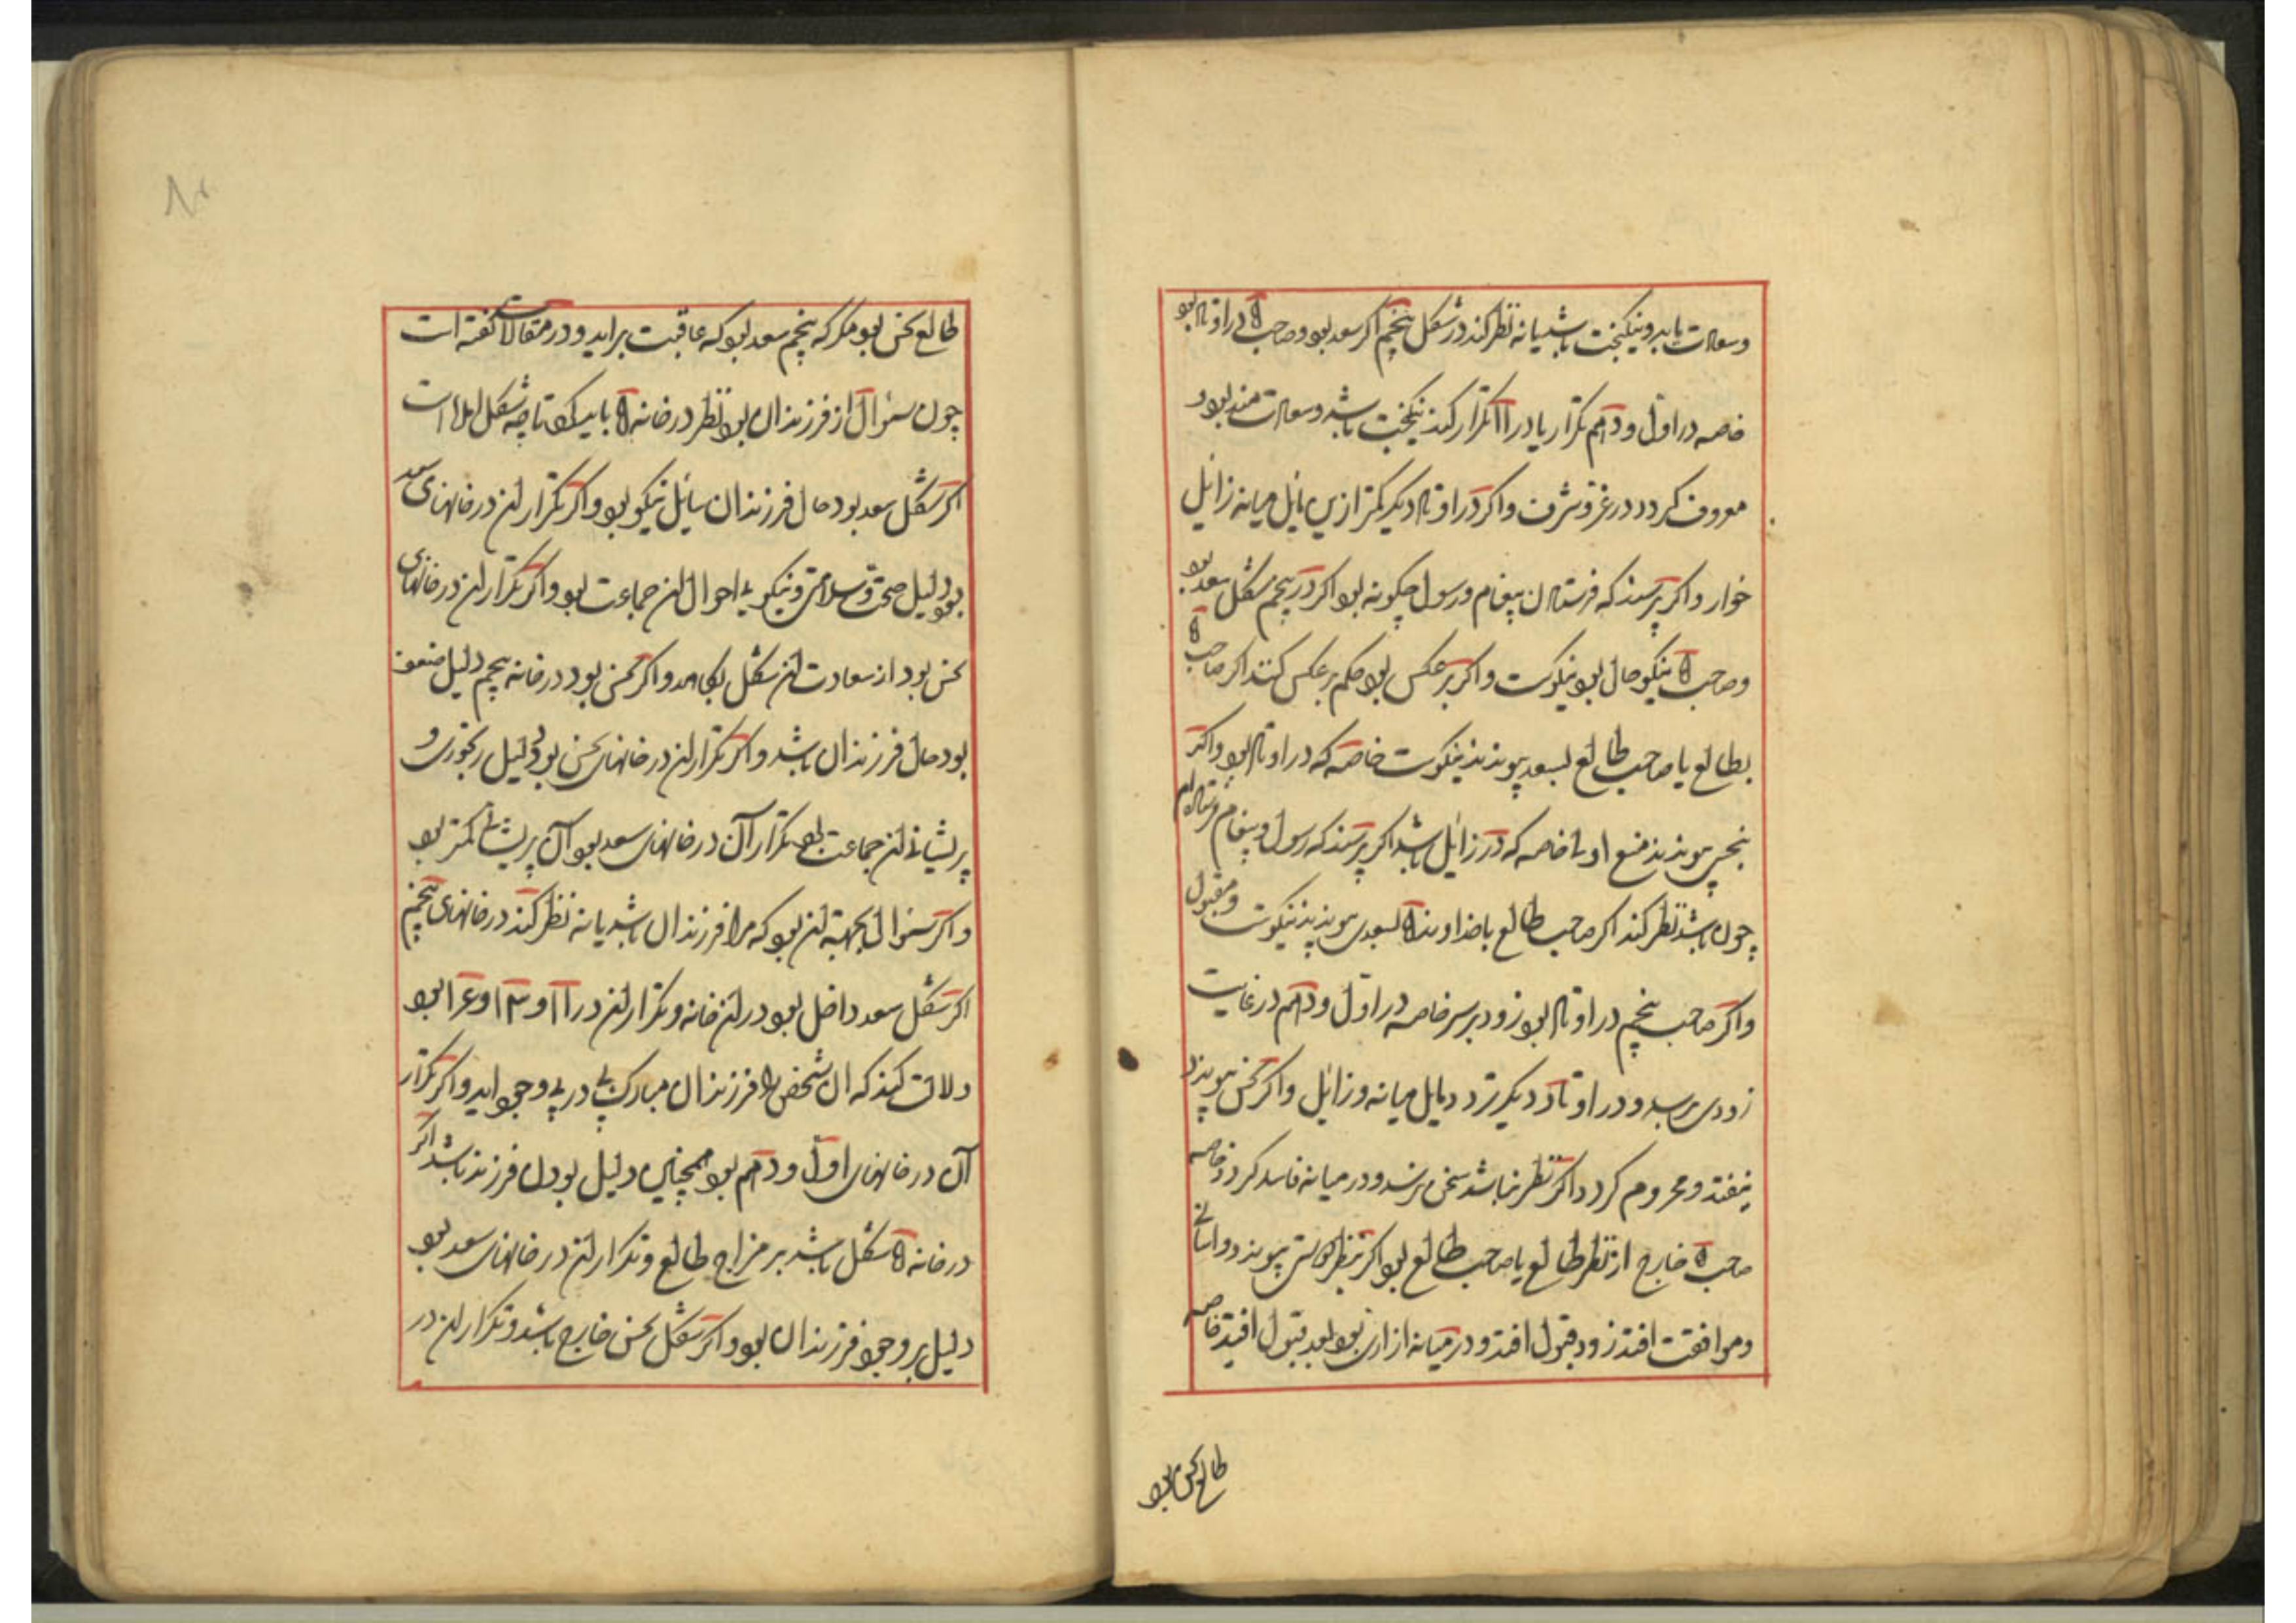 وسعادت یابد و نیکبخت باشد یا نه نظر کند در شکل پنجم اگر سعد بود و صاحب ۵ در اوتاد بود
خاصه در اول و دهم تکرار یا در ۱۱ تکرار کند نیکبخت باشد و سعادت مند بود و
معروف کردد در عز و شرف و اکر در اوتاد دیکر کمتر ازین مایل میانه زایل
خوار و اکر پرسند که فرستادن پیغام و رسول چکونه بود اکر در پنجم شکل سعد بود
وصاحب ۵ نیکو حال بود نیکوست و اکر برعکس بود حکم برعکس کنند اکر صاحب ۵
بطالع یا صاحب طالع بسعد پیوندند نیکوست خاصه که در اوتاد بود و اکر
بنحس پیوندند منع اولی خاصه که در زائل باشد اکر پرسند که رسول و پیغام فرستاده‌ام
چون باشد نظر کند اکر صاحب طالع با خداوند ۵ بسعدی پیوندند نیکوست و مقبول
و اکر صاحب پنجم در اوتاد بود زود برسد خاصه در اول و دهم در غایت
زودی برسد و در اوتاد دیکر تردد مایل میانه و زائل و اکر نحس پیوندد
نیفتد و محروم کردد اکر نظر نباشد سخن نرسد و در میانه فاسد کردد خاصه
صاحب ۵ خارج از نظر طالع یا صاحب طالع بود اکر بنظر دوستی پیوندد و آسانی
و موافقت افتد زود قبول افتد و در میانه از آن بود بعد قبول افتد خاصه
طالع نحس بود
طالع نحس بود مکر که پنجم سعد بود که عاقبت براید و در مقالات گفته است
چون سئوال از فرزندان بود نظر در خانه ۵ باید کرد تا چه شکل امده است
اکر شکل سعد بود حال فرزندان سایل نیکو بود و اکر تکرار ان در خانهای سعد
بود دلیل صحت و سلامتی و نیکویی احوال ان جماعت بود و اکر تکرار ان در خانهای
نحس بود از سعادت ان شکل بکاهد و اکر نحس بود در خانه پنجم دلیل ضعف
بود حال فرزندان باشد و اکر تکرار ان در خانهای نحس بود دلیل رنجوری و
پریشانی ان جماعت بود تکرار آن در خانهای سعد بود آن پریشانی کمتر بود
و اکر سئوال بجهته ان بود که مرا فرزندان باشد یا نه نظر کند در خانهای پنجم
اکر شکل سعد داخل بود در ان خانه و تکرار ان در ۱۱ و ۱۳ و ۱۴ بود
دلالت کند که ان شخص را فرزندان مبارک پی در پی بوجود اید و اکر تکرار
آن در خانهای اول و دهم بود همچنین دلیل بودن فرزند باشد اکر
در خانه ۵ شکل باشد بر مزاج طالع و تکرار ان در خانهای سعد بود
دلیل بر وجود فرزندان بود و اکر شکل نحس خارج باشد و تکرار ان در